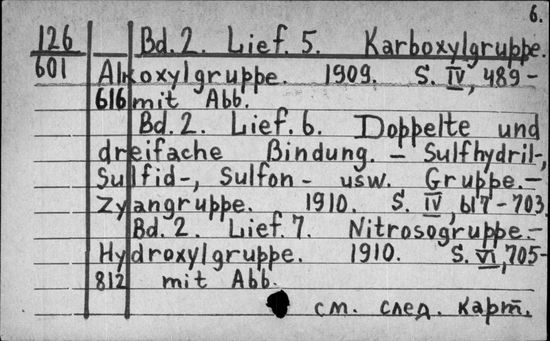 6.
126
601
Bd. 2. Lief. 5. Karboxylgruppe.
Alkoxylgruppe. 1909. S. IV, 489-
616 mit Abb.
Bd. 2. Lief. 6. Doppelte und
dreifache Bindung. - Sulfhydril-,
Sulfid-, Sulfon- usw. Gruppe. -
Zyangruppe. 1910. S. IV, 617-703.
Bd. 2. Lief. 7. Nitrosogruppe. -
Hydroxylgruppe. 1910. S. VI, 705-
812 mit Abb.
см. след. карт.